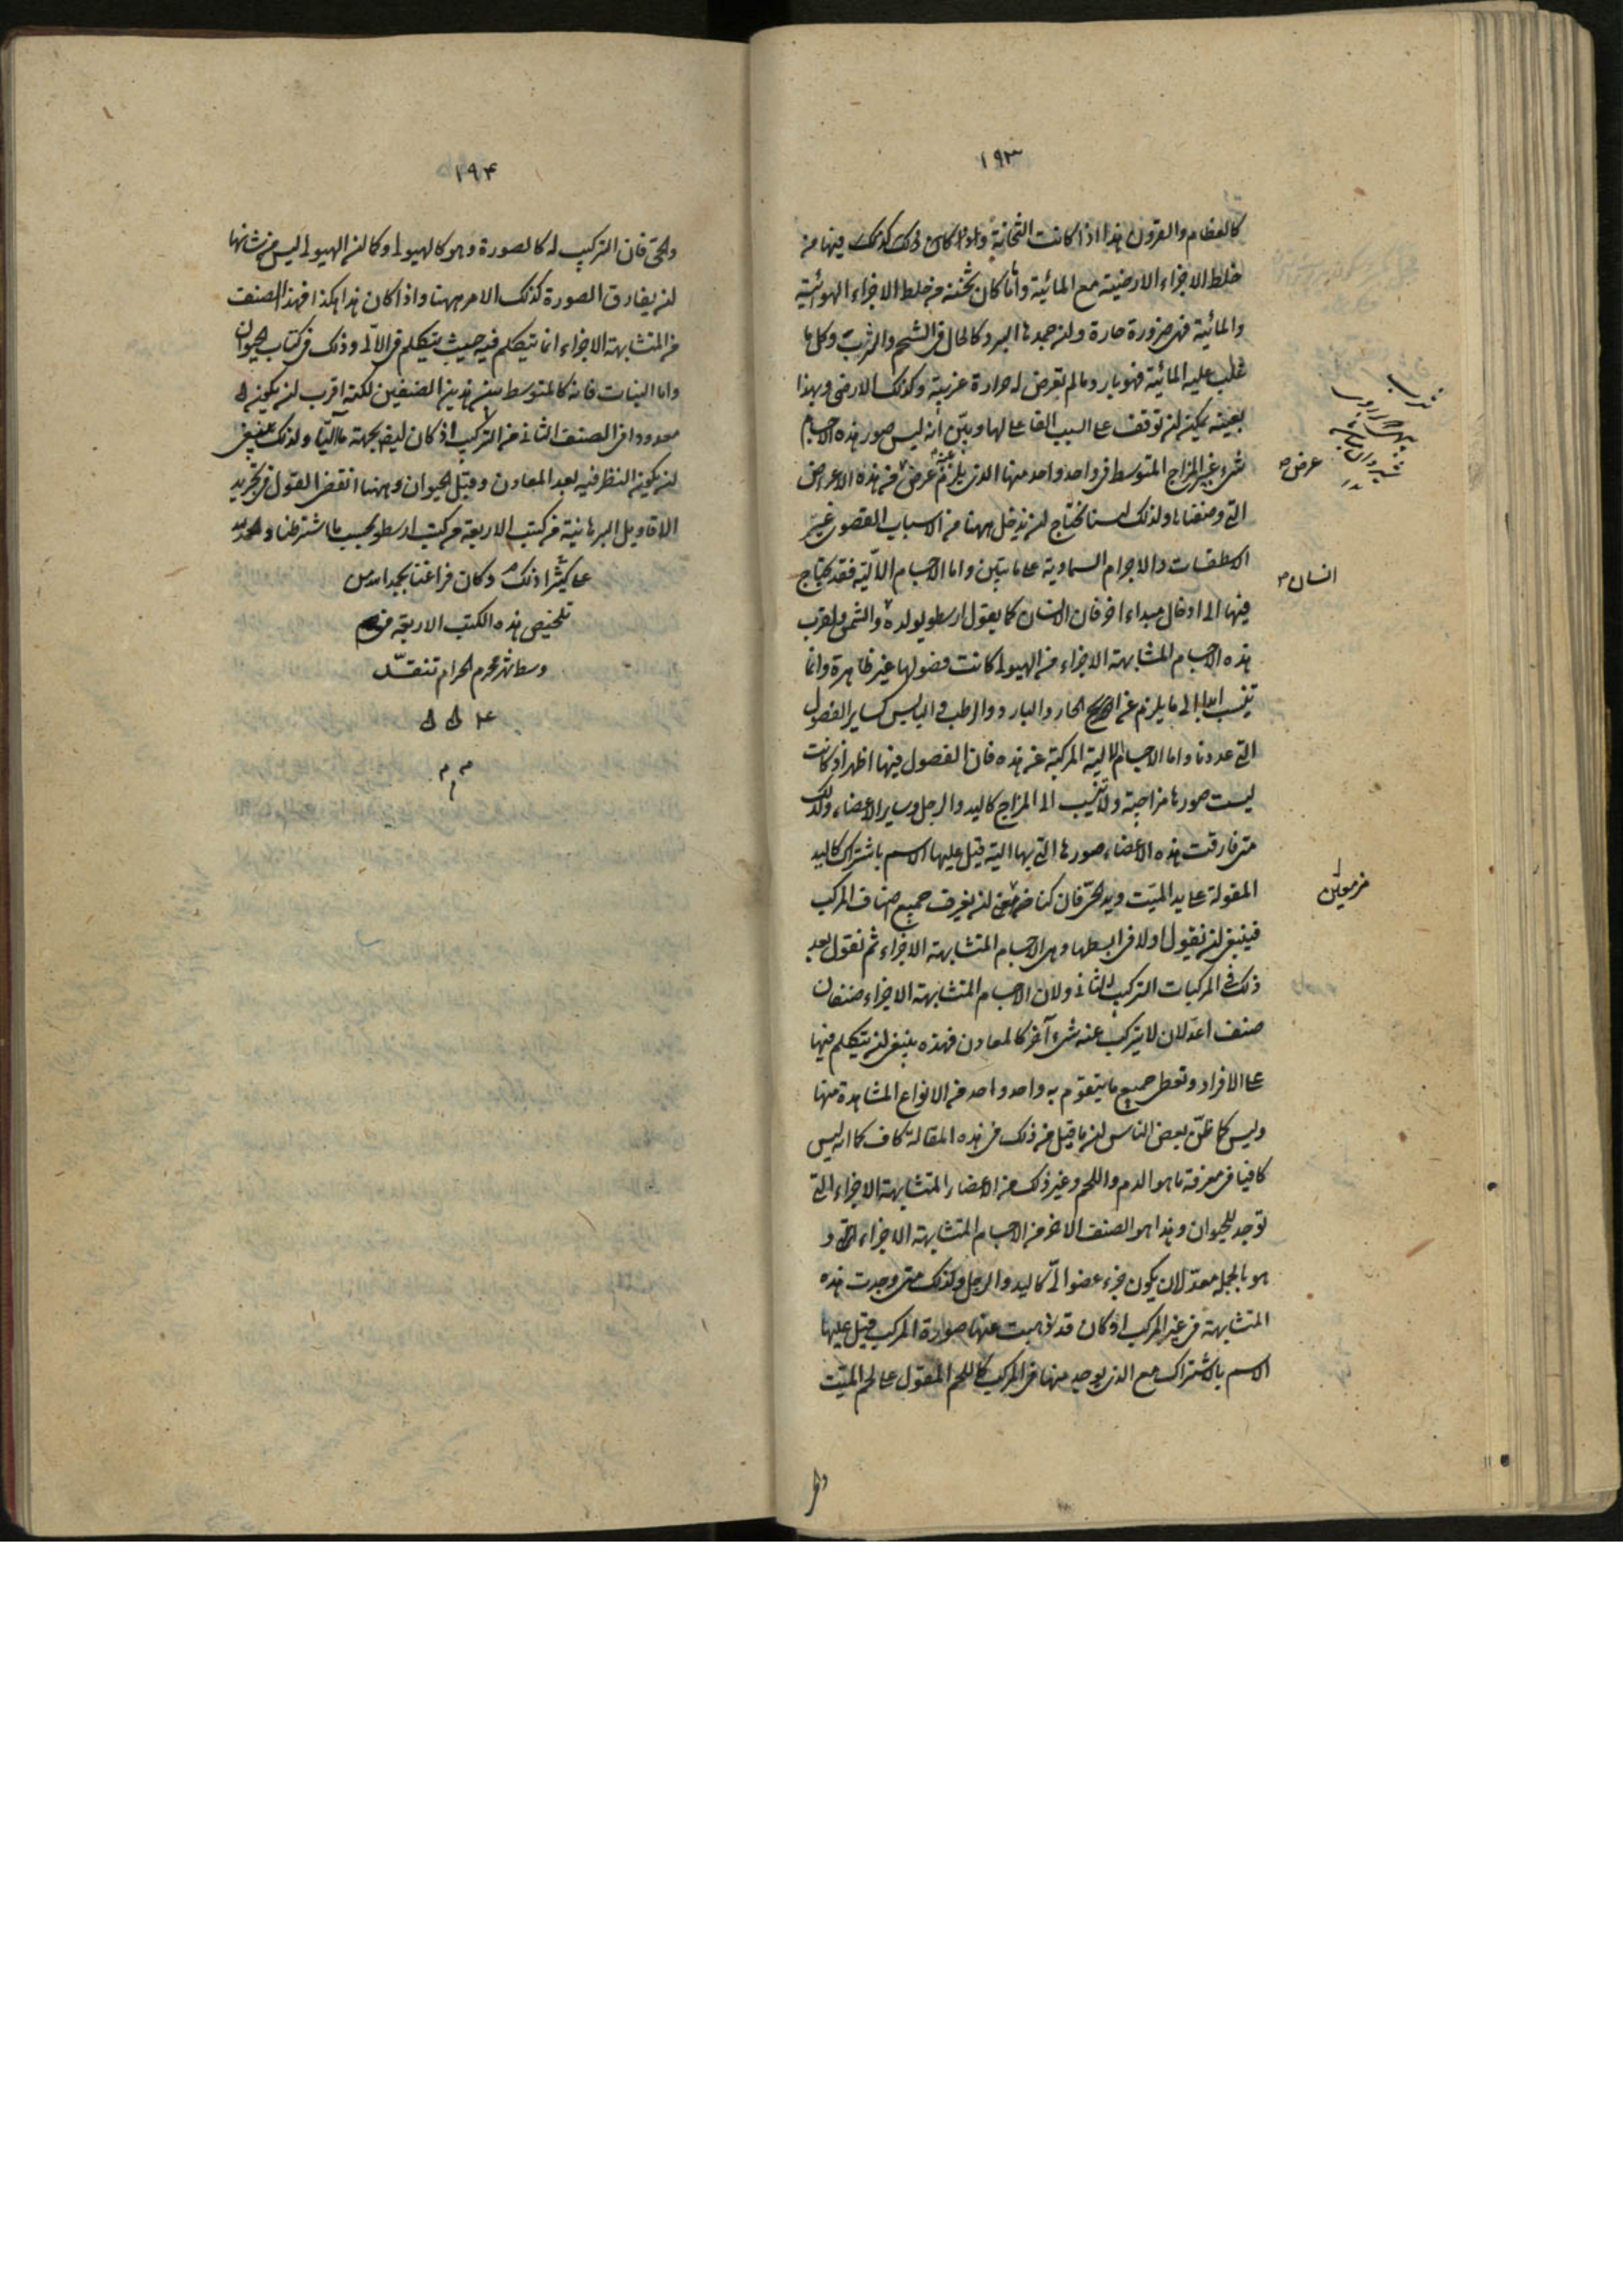 ١٩٣
كالعظام والقرون هذا اذا كانت الثخانة كذلك فيها من
خلط الاجزاء الارضية مع المائية وأما كان ثخنه من خلط الاجزاء الهوائية
والمائية فهى ضرورة حارة ولن جمدها البرد كالحال فى الشحم والثرب وكل ما
غلب عليه المائية فهو بارد ما لم تعرض له حرارة غريبة وكذلك الارضى وبهذا
بعينه يمكنه لن توقف على السبب الفاعل لها وتبين أنه ليس صور هذه الاجسام
شىء غير المزاج المتوسط فى واحد واحد منها الذى يلزم عنه عرض من هذه الاعراض
عرض
التى وصفناها ولذلك لسنا نحتاج لن ندخل ههنا من الاسباب القصوى غير
الاسطقسات والاجرام السماوية على ما تبين واما الاجسام الآلية فقد يحتاج
انسان
فيها الى ادخال مبداء اخر فان الانسان كما يقول ارسطو يولده والشمس ولقرب
هذه الاجسام المتشابهة الاجزاء من الهيولى كانت فصولها غير ظاهرة وانما
تنسب ابدا الى ما يلزم عن امتزاج الحار والبارد والرطب واليابس كساير الفصول
التى عددنا واما الاجسام الالية المركبة عن هذه فان الفصول فيها اظهر اذ كانت
ليست صورها مزاجية ولا تنسب الى المزاج كاليد والرجل وساير الاعضاء ولذلك
متى فارقت هذه الاعضاء صورها التى بها الية قيل عليها الاسم باشتراك كاليد
المقولة على يد الميت ويد الحى فان كنا مزمعين لن نعرف جميع اصناف المركب
مزمعين
فينبغى لن نقول اولا فى ابسطها وهى الاجسام المتشابهة الاجزاء ثم نقول بعد
ذلك فى المركبات التركيب الثانى ولان الاجسام المتشابهة الاجزاء صنفان
صنف اعد لان لا يتركب عنه شىء آخر كالمعادن فهذه ينبغى لن يتكلم فيها
على الافراد وتعطى جميع ما يتقوم به واحد واحد من الانواع المشاهدة منها
وليس كما ظن بعض الناس لن ما قيل من ذلك فى هذه المقالة كاف كما انه ليس
كافيا فى معرفة ما هو الدم واللحم وغير ذلك من الاعضاء المتشابهة الاجزاء التى
توجد للحيوان وهذا هو الصنف الاخر من الاجسام المتشابهة الاجزاء و
هو بالجملة معد لان يكون جزء عضو الى كاليد والرجل ولذلك متى وجدت هذه
المتشابهة فى غير المركب اذ كان قد ذهبت عنها صورة المركب قيل عليها
الاسم باشتراك مع الذى يوجد منها فى المركب كاللحم المقول على لحم الميت
١٩۴
والحى فان التركيب له كالصورة وهو كالهيولى وكما لن الهيولى ليس من شانها
لن يفارق الصورة كذلك الامر ههنا واذا كان هذا هكذا فهذا الصنف
من المتشابهة الاجزاء انما يتكلم فيه حيث يتكلم فى الآلى وذلك فى كتاب الحيوان
واما النبات فانه كالمتوسط بين هذين الصنفين لكنه اقرب لن يكون
معدودا فى الصنف الثانى من التركيب اذ كان ليضا بجهة ما آليا ولذلك ينبغى
لن يكون النظر فيه بعد المعادن وقبل الحيوان وههنا انقضى القول فى تجريد
الاقاويل البرهانية من كتب الاربعة من كتب ارسطو بحسب ما اشترطنا والحمد لله
على كثيرا ذلك وكان فراغنا بحمد الله من
تلخيص هذه الكتب الاربعة فى
وسط شهر محرم الحرام